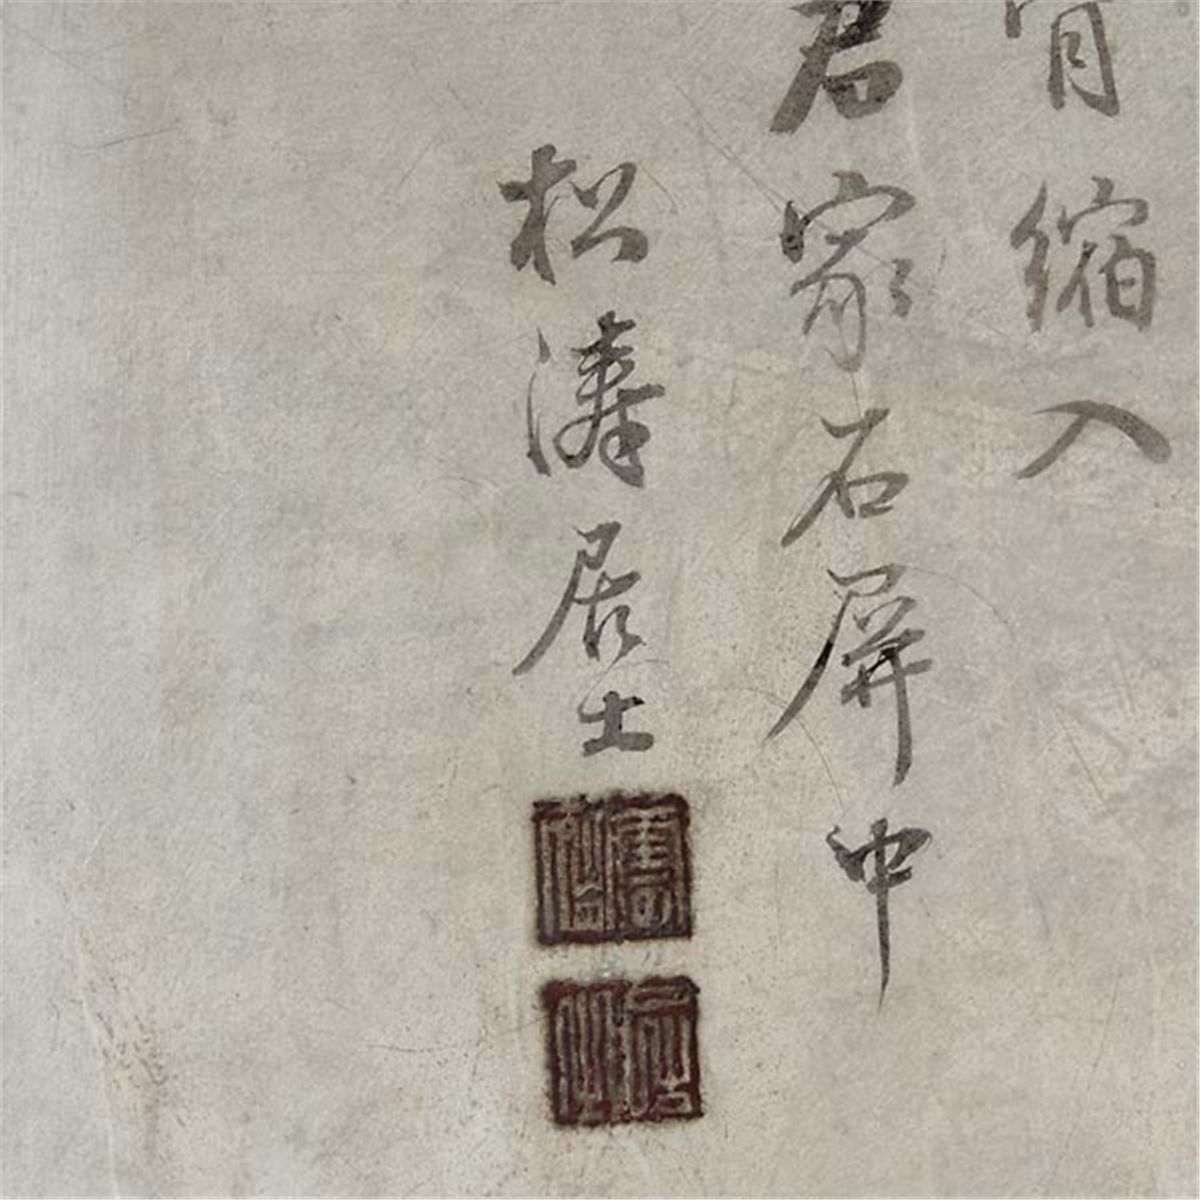 縮入
君家石屏中
松濤居士